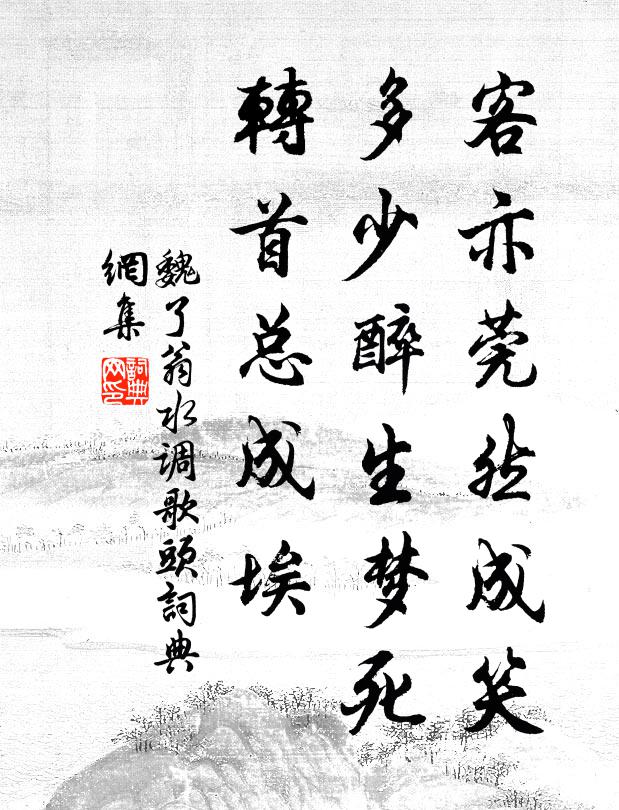 客亦莞然成笑
多少醉生梦死
轉首总成埃
魏了翁水调歌頭詞典
網集
詞典网印